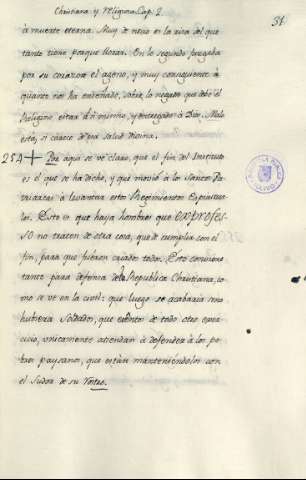 Christiana y Religiosa Cap. 2
51.
à muerte eterna. Muy de necio es la risa del que
tanto tiene porque llorar. En lo segundo juzgaba
por su corazon el ageno, y muy consiguiente à
quanto nos ha enseñado, sobre lo negado que debe el
Religioso estar à si mismo, y entregado à Dios. Malo
está, si carece de esta salud Divina.
254 + Por aqui se ve claro, que el fin del Instituto
es el que se ha dicho, y que movió à los Santos Pa-
triarcas à levantar estos Regimientos Espiritua-
les. Esto es que haya hombres que ex profes-
so no tracen de otra cosa, que de cumplir con el
fin, para que fueron criados todos. Esto conviene
tanto para defensa de la Republica Christiana, co-
mo se ve en la civil: que luego se acabaria sino
hubiera Soldados, que exentos de todo otro exer-
cicio, unicamente atiendan à defender à los po-
bres paysanos, que estàn manteniendolos con
el Sudor de su